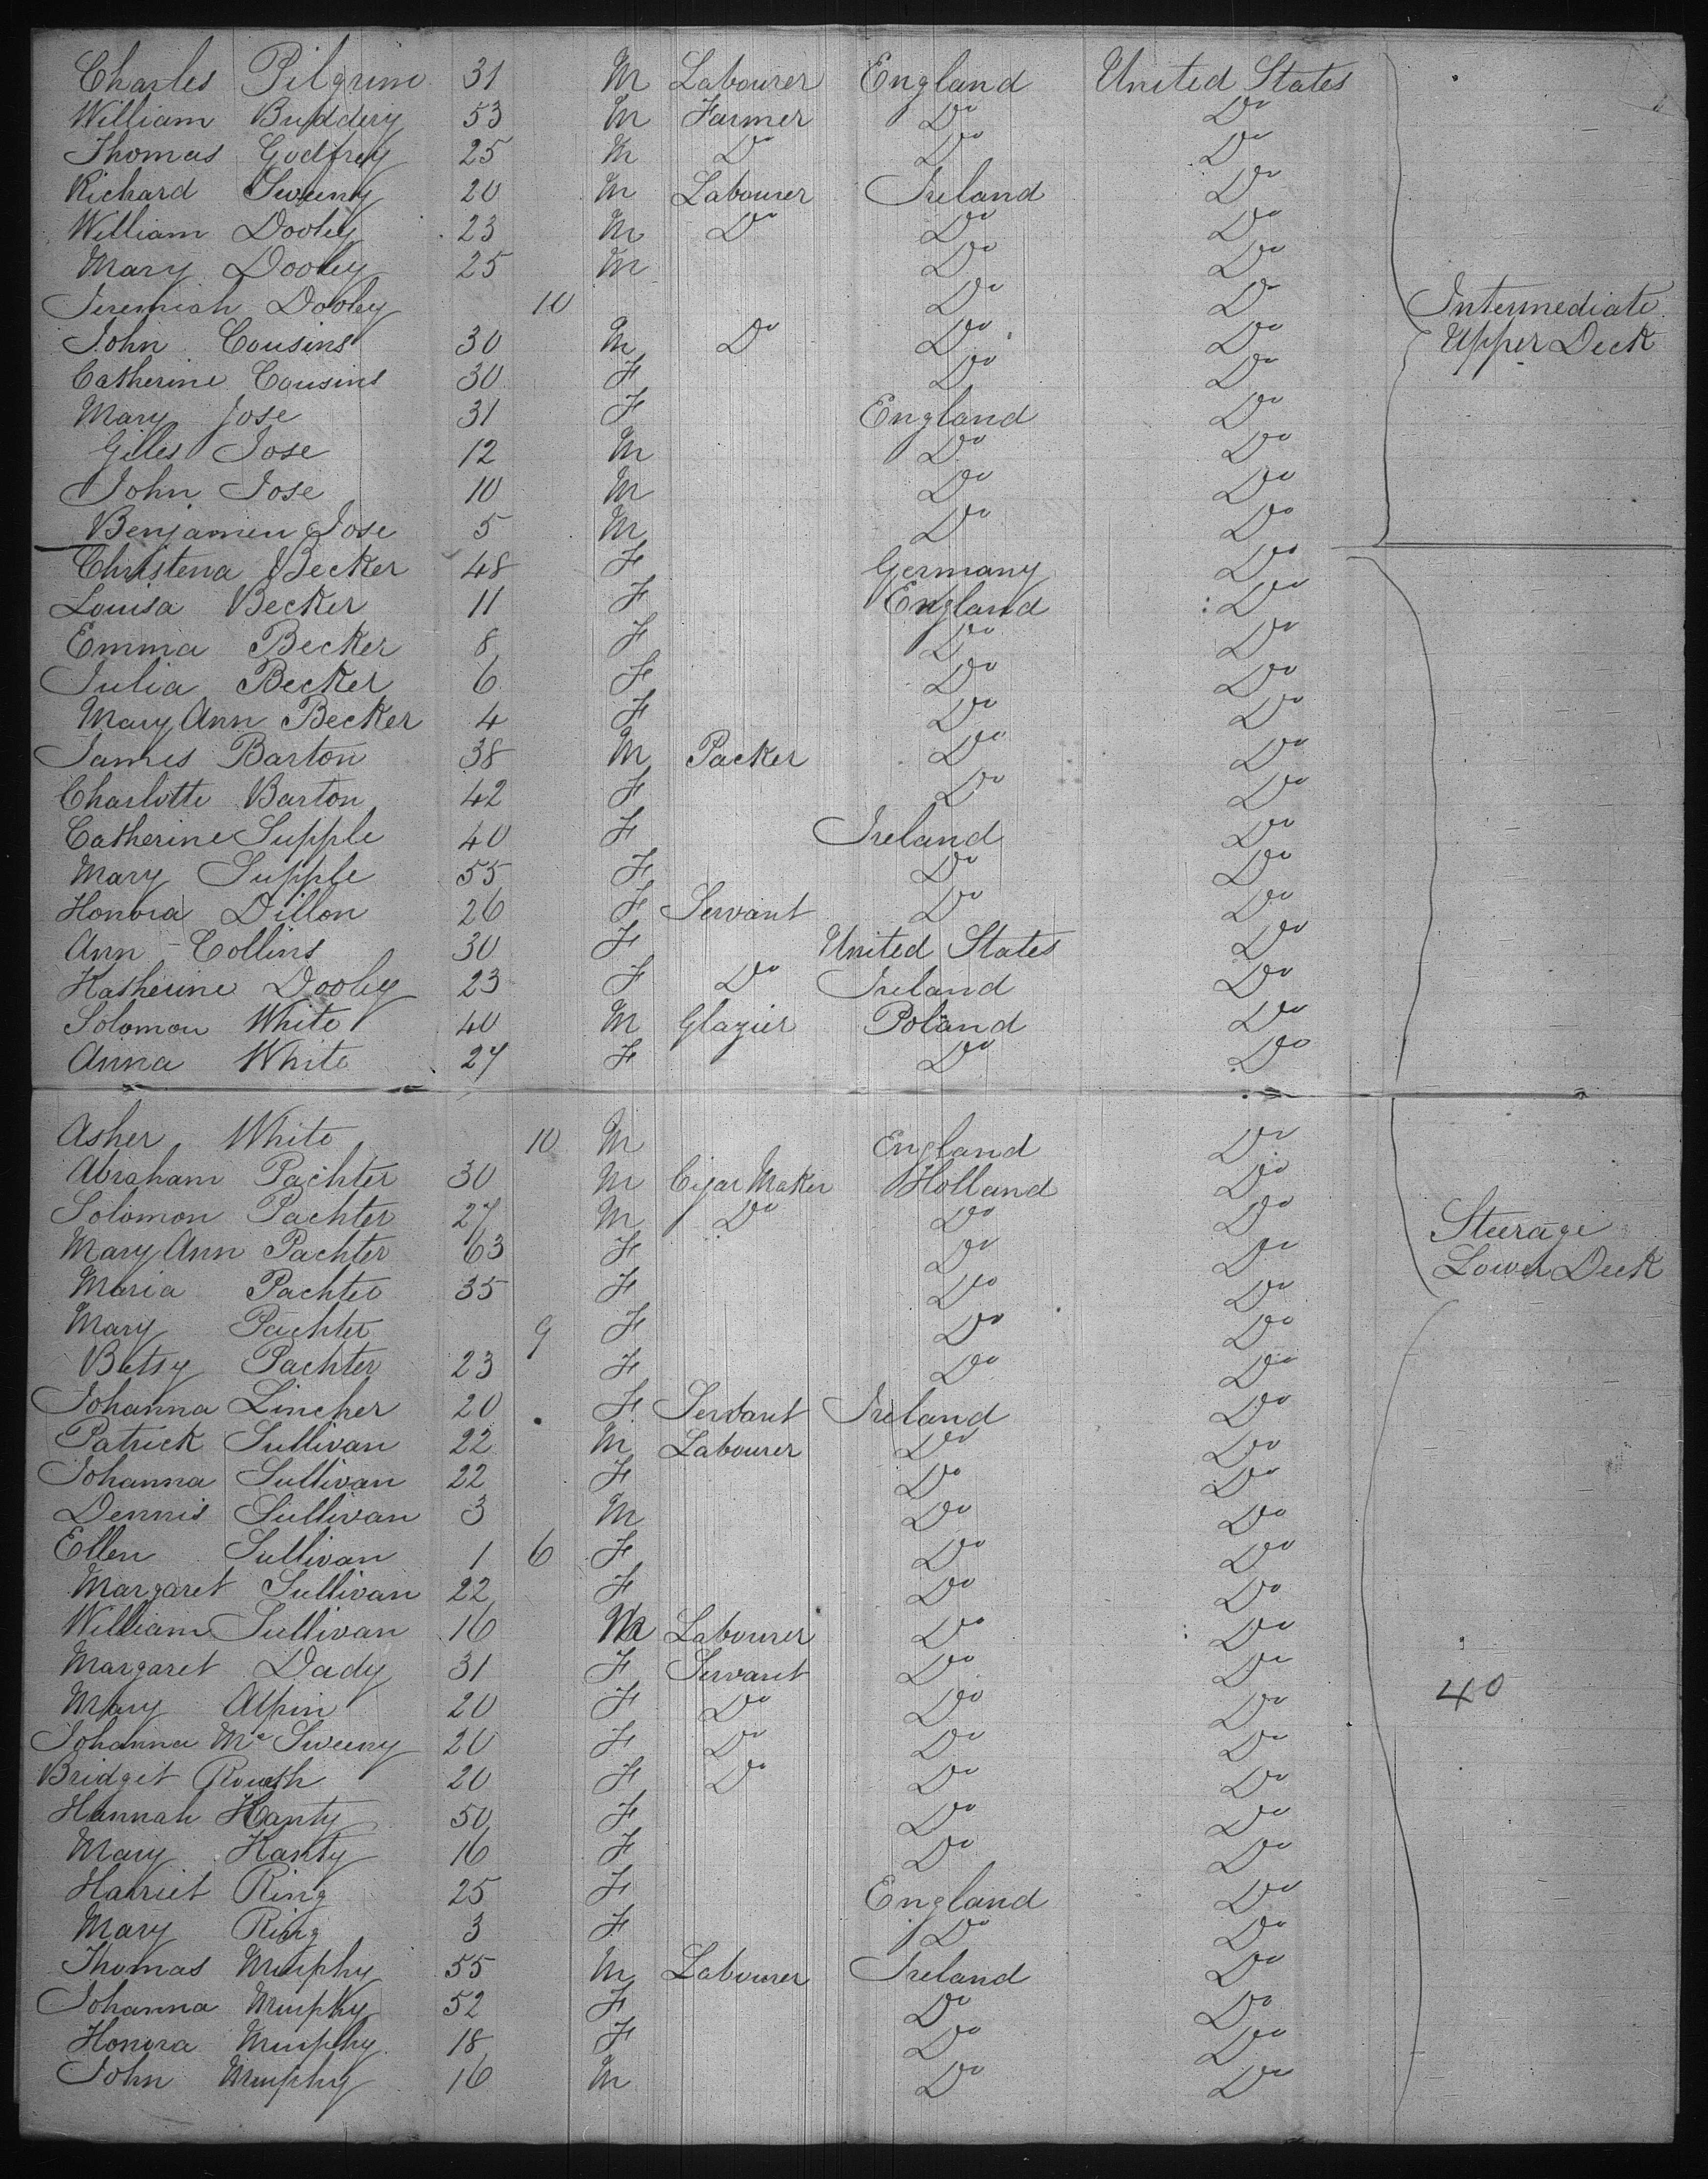 Charles Pilgrim 31 M Labourer England United States
William Buddery 53 M Farmer Do Do
Thomas Godfrey 25 M Do Do Do
Richard Sweeny 20 M Labourer Ireland Do
William Dooley 23 M Do Do Do
Mary Dooley 25 M Do Do
Jeremiah Dooley 10 Do Do Intermediate
John Cousins 30 M Do Do Do Upper Deck
Catherine Cousins 30 F Do Do
Mary Jose 31 F England Do
Gilles Jose 12 M Do Do
John Jose 10 M Do Do
Benjamin Jose 5 M Do Do
Christena Becker 48 F Germany Do
Louisa Becker 11 F England Do
Emma Becker 8 F Do Do
Julia Becker 6 F Do Do
Mary Ann Becker 4 F Do Do
James Barton 38 M Packer Do Do
Charlotte Barton 42 F Do Do
Catherine Supple 40 F Ireland Do
Mary Supple 55 F Do Do
Honora Dillon 26 F Servant Do Do
Ann Collins 30 F United States Do
Katherine Dooley 23 F Do Ireland Do
Solomon White 40 M Glazier Poland Do
Anna White 27 F Do Do
Asher White 10 M England Do
Abraham Pachter 30 M Cigar Maker Holland Do
Solomon Pachter 27 M Do Do Do Steerage
Mary Ann Pachter 63 F Do Do Lower Deck
Maria Pachter 35 F Do Do
Mary Pachter 9 F Do Do
Betsy Pachter 23 F Do Do
Johanna Lincher 20 F Servant Ireland Do
Patrick Sullivan 22 M Labourer Do Do
Johanna Sullivan 22 F Do Do
Dennis Sullivan 3 M Do Do
Ellen Sullivan 1 6 F Do Do
Margaret Sullivan 22 F Do Do
William Sullivan 16 M Labourer Do Do
Margaret Dady 31 F Servant Do Do
Mary Alpin 20 F Do Do Do 40
Johanna Mc Sweeny 20 F Do Do Do
Bridget 20 F Do Do Do
Hannah Hanty 50 F Do Do
Mary Hanty 16 F Do Do
Harriet Ring 25 F England Do
Mary Ring 3 F Do Do
Thomas Murphy 55 M Labourer Ireland Do
Johanna Murphy 52 F Do Do
Honora Murphy 18 F Do Do
John Murphy 16 M Do Do